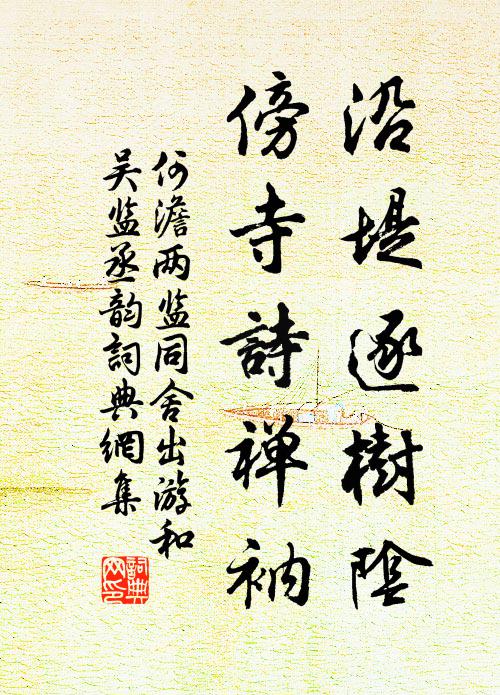 沿堤逐樹陰
傍寺詩禅衲
何澹两监同舍出游和
吴监丞韵詞典網集
詞典
网印